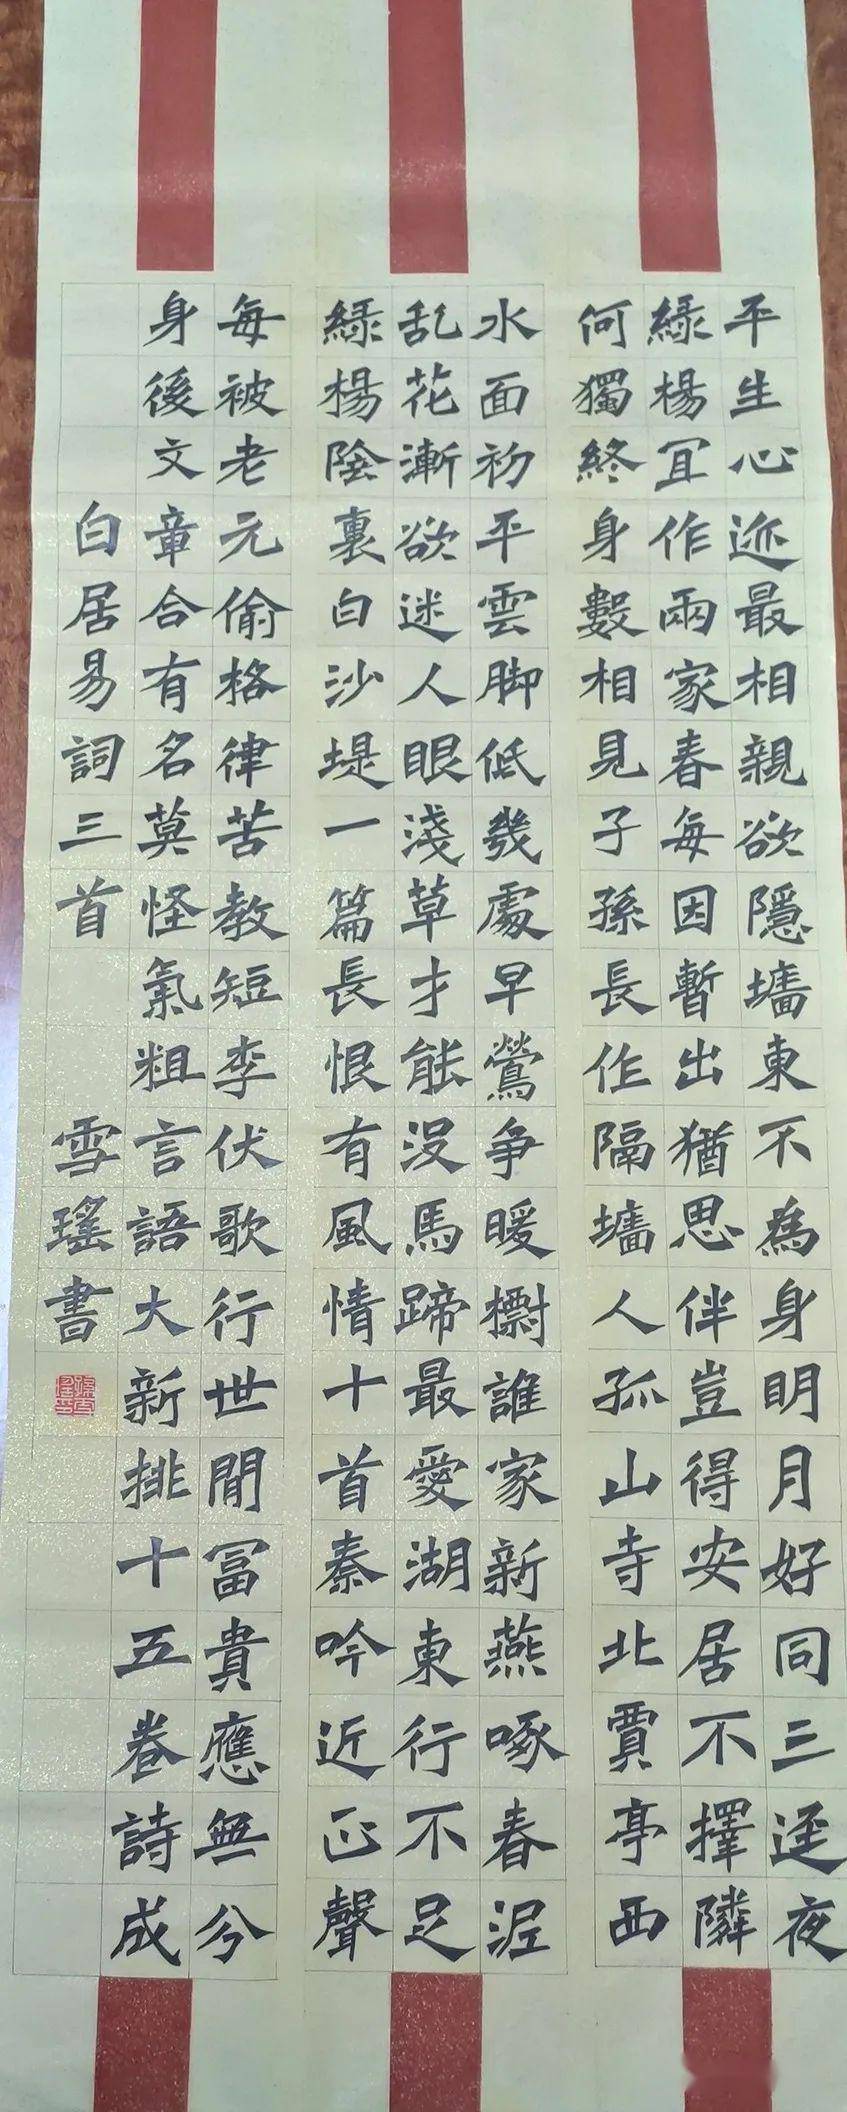 平生心迹最相親欲隱墻東不為身明月好同三逕夜
綠楊宜作兩家春每因暫出猶思伴豈得安居不擇隣
何獨終身數相見子孫長作隔墻人孤山寺北賈亭西
水面初平雲脚低幾處早鶯爭暖樹誰家新燕啄春泥
乱花漸欲迷人眼淺草才能沒馬蹄最愛湖東行不足
綠楊陰裏白沙堤一篇長恨有風情十首秦吟近正聲
每被老元偷格律苦教短李伏歌行世間冨貴應無兮
身後文章合有名莫怪氣粗言語大新排十五卷詩成
白居易詞三首 雪瑤書